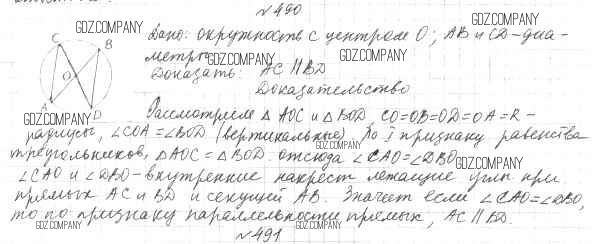 N 490
GDZ.COMPANY
Дано: окружность с центром O, AB и CD-диа-
GDZ.COMPANY
метры
GDZ.COMPANY
C B
O
A D
Доказать: AC || BD
Доказательство
GDZ.COMPANY
Рассмотрим △ AOC и △ BOD CO=OB=OD=OA=R-
GDZ.COMPANY
радиусы, ∠COA=∠BOD (вертикальные) По I признаку равенства
треугольников, △AOC=△BOD. отсюда ∠CAO=∠DBO
GDZ.COMPANY
∠CAO и ∠DBO-внутренние накрест лежащие углы при
GDZ.COMPANY
прямых AC и BD и секущей AB. Значит если ∠CAO=∠DBO,
то по признаку параллельности прямых, AC || BD.
GDZ.COMPANY GDZ.COMPANY GDZ.COMPANY
N 491